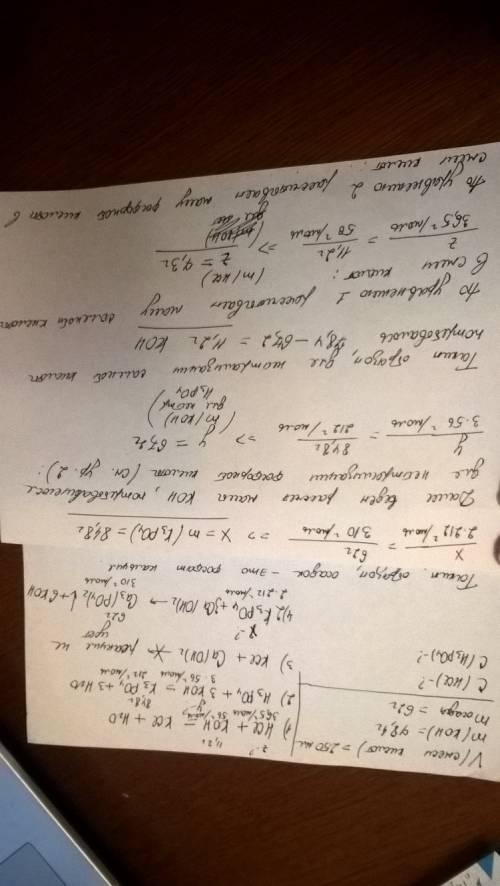 V(смеси кислот) = 250 мл
m(KOH) = 78,4г
mосадка = 62г
C(HCl)-?
C(H₃PO₄)-?
z-? 11,2г
1) HCl + KOH = KCl + H₂O
36,5г/моль 56г/моль
y-? 84,8г
2) H₃PO₄ + 3KOH = K₃PO₄ + 3H₂O
3·56г/моль 212г/моль
3) KCl + Ca(OH)₂ реакция не идет
x-? 62г
4) 2K₃PO₄ + 3Ca(OH)₂ → Ca₃(PO₄)₂↓ + 6KOH
2·212г/моль 310г/моль
Таким образом, осадок - это фосфат кальция
x / 2·212г/моль = 62г / 310г/моль => x = m(K₃PO₄) = 84,8г
Далее ведем рассчет массы KOH, потребовавшегося
для нейтрализации фосфорной кислоты (см. ур. 2):
y / 3·56г/моль = 84,8г / 212г/моль => y = 67,2г
(m(KOH) для нейтр. H₃PO₄)
Таким образом, для нейтрализации соляной кислоты
потребовалось 78,4 - 67,2 = 11,2г KOH
По уравнению 1 рассчитываем массу соляной кислоты
в смеси кислот:
z / 36,5г/моль = 11,2г / 56г/моль => z = 7,3г
(m(HCl))
По уравнению 2 рассчитываем массу фосфорной кислоты в
смеси кислот: